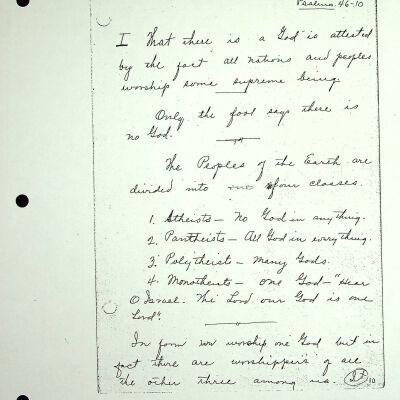 Psalms. 46-10
I That there is a God is attested
by the fact all nations and peoples
worship some supreme being.
Only the fool says there is
no God.
The Peoples of the Earth are
divided into four classes.
1. Atheists — No God in anything.
2. Pantheists — All God in everything.
3. Polytheists — Many Gods.
4. Monotheists — One God — "Hear
O Israel. The Lord our God is one
Lord".
In form we worship one God but in
fact there are worshippers of all
the other three among us.
10